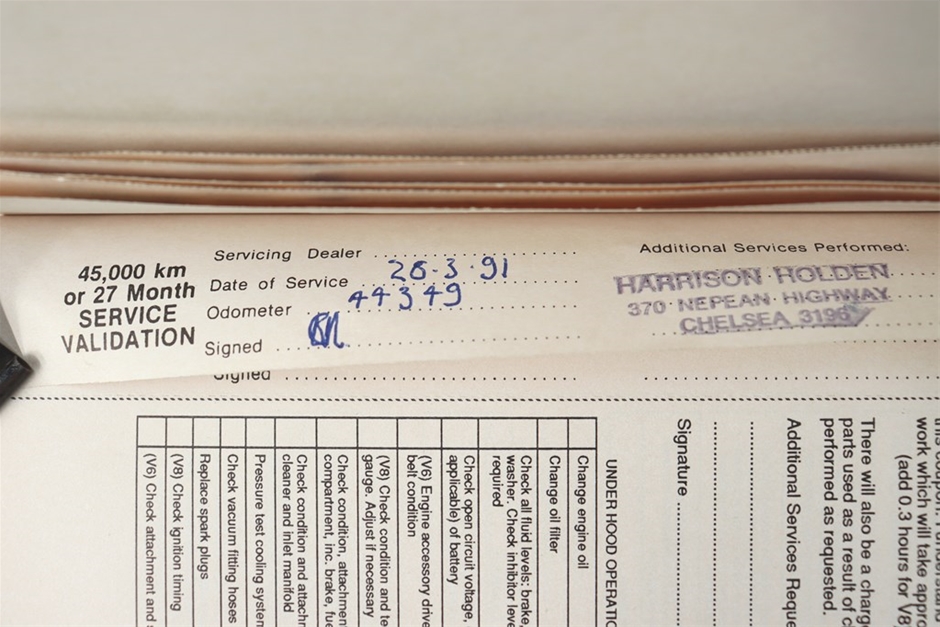 45,000 km
or 27 Month
SERVICE
VALIDATION
Servicing Dealer
Date of Service 26.3.91
Odometer 44349
Signed
Additional Services Performed:
HARRISON HOLDEN
370 NEPEAN HIGHWAY
CHELSEA 3196
Signed
work which will take
(add 0.3 hours for V8
There will also be a
parts used as a result of
performed as requested.
Additional Services
Signature
UNDER HOOD
Change engine oil
Change oil filter
Check all fluid levels: brake,
washer. Check inhibitor
required
Check open circuit voltage,
applicable) of battery
(V6) Engine accessory drive
belt condition
(V8) Check condition and
gauge. Adjust if necessary
Check condition,
compartment, inc. brake,
Check condition and
cleaner and inlet manifold
Pressure test cooling system
Check vacuum fitting hoses
Replace spark plugs
(V8) Check ignition timing
(V6) Check attachment and